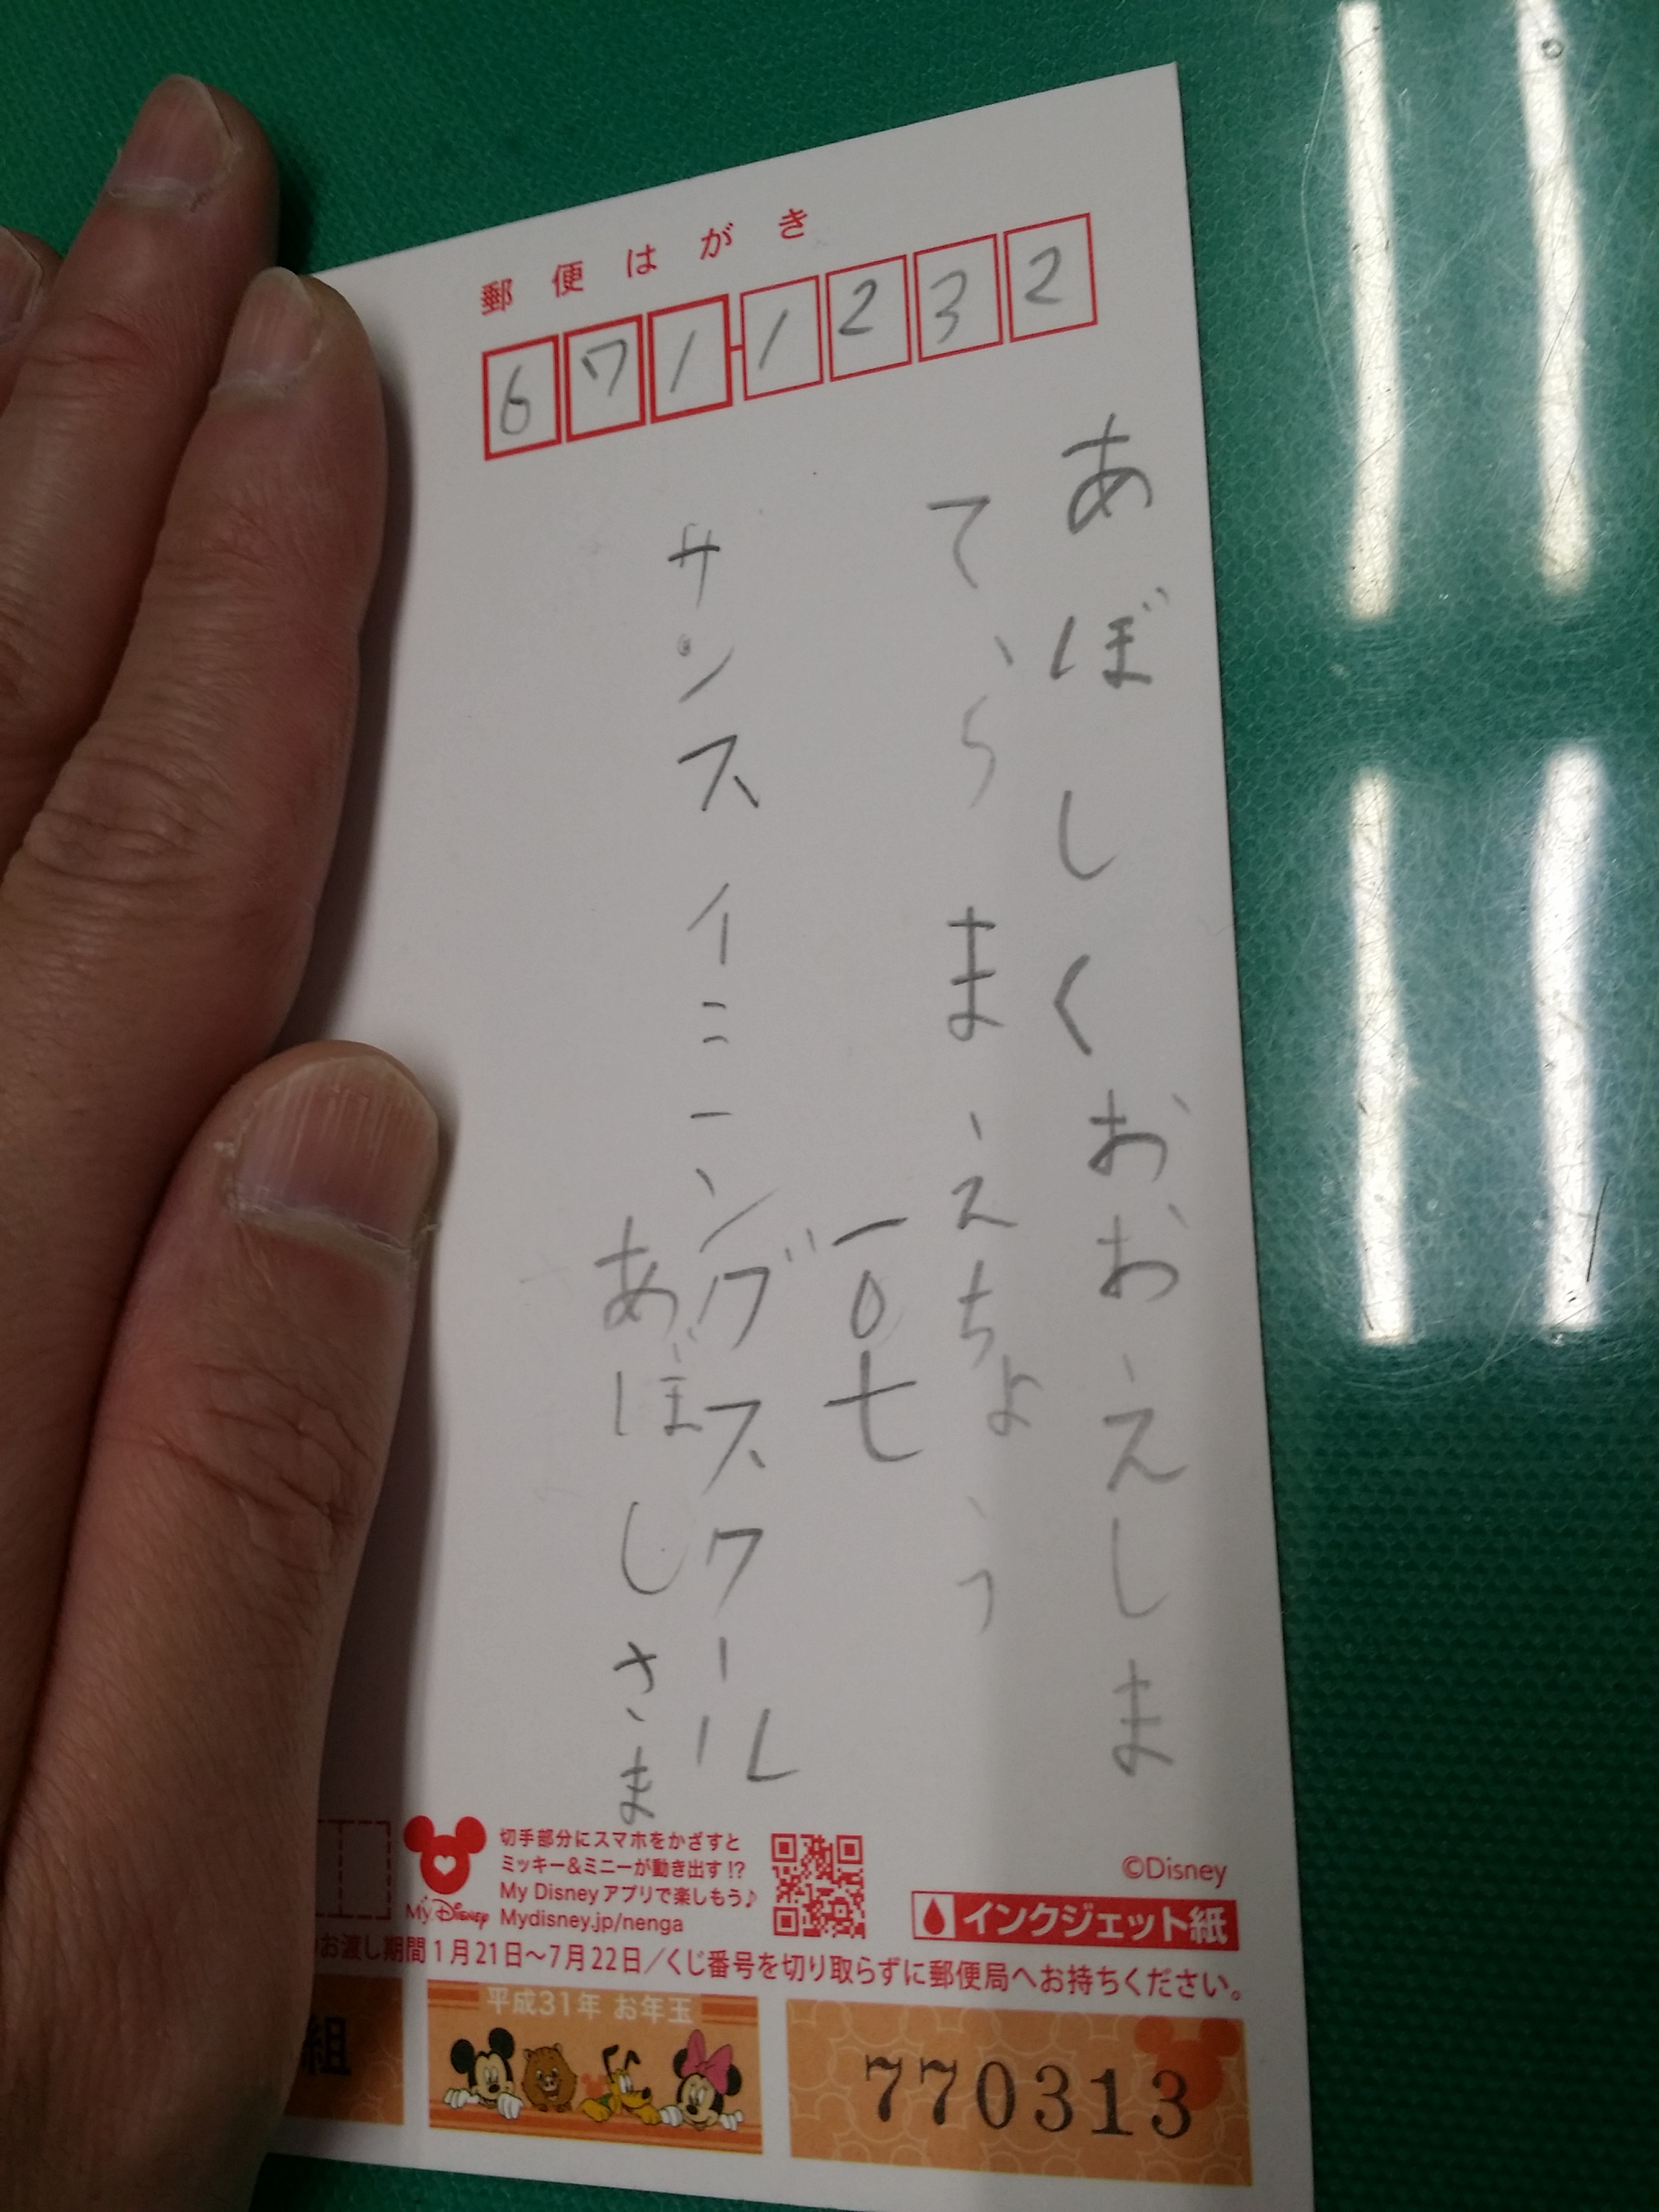 郵便はがき
671-1232
あぼしくおおえしま
てらまえちょう
一〇七
サンスイミングスクール
あぼしさま
切手部分にスマホをかざすと
ミッキー&ミニーが動き出す!?
My Disneyアプリで楽しもう♪
Mydisney.jp/nenga
My Disney
©Disney
インクジェット紙
お渡し期間1月21日～7月22日/くじ番号を切り取らずに郵便局へお持ちください。
組
平成31年 お年玉
770313